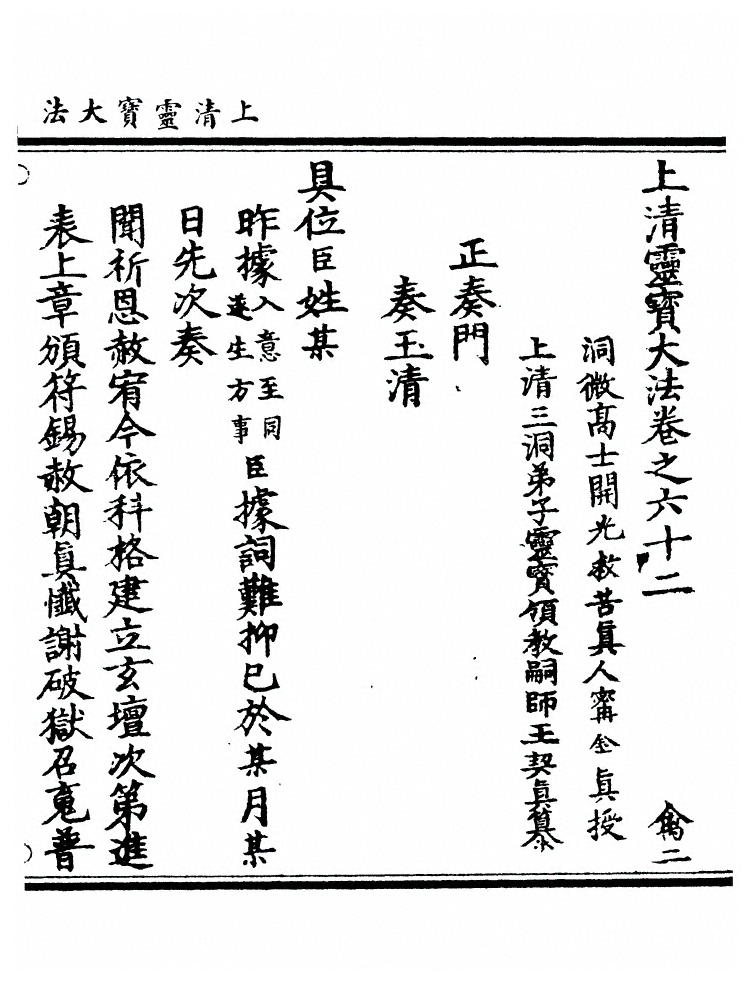 上清靈寶大法
上清靈寶大法卷之六十二
禽二
洞微高士開光救苦眞人甯全眞授
上清三洞弟子靈寶領教嗣師王契眞纂
正奏門
奏玉清
具位臣姓某
昨據入意至同遂生方事臣據詞難抑已於某月某
日先次奏
聞祈恩赦宥今依科格建立玄壇次第進
表上章頒符錫赦朝眞懺謝破獄召䰟普